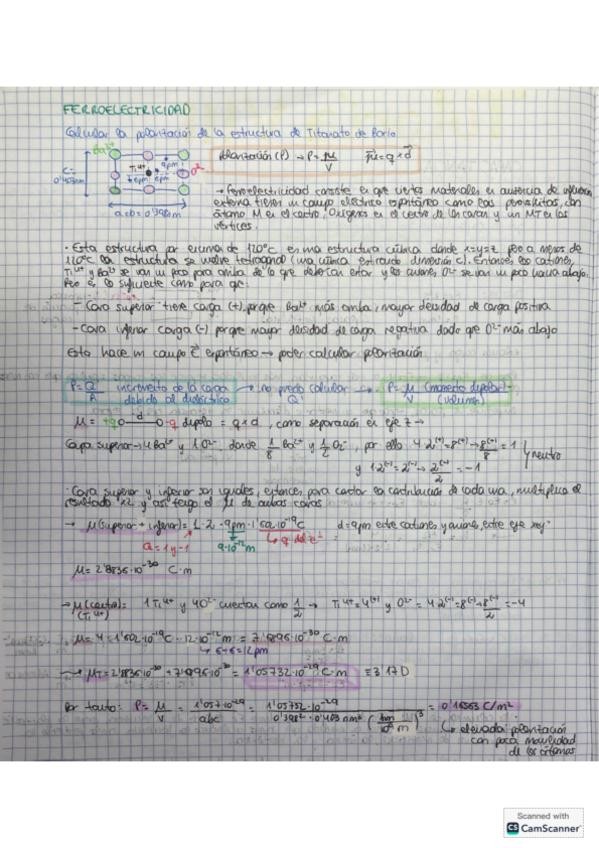 FERROELECTRICIDAD
Calcular la polarización de la estructura de Titanato de Bario
Ba²⁺
Polarización (P) → P = μ/V   μ⃗ = q × d⃗
Ti⁴⁺ 9pm
6pm 6pm O²⁻
C= 0'403nm
a=b= 0'398nm
→ Ferroelectricidad consiste en que ciertos materiales en ausencia de
externa tienen un campo eléctrico espontáneo como las perovskitas, con
átomo M en el centro, Oxígenos en el centro de las caras y un MT en los
vértices.
· Esta estructura por encima de 120°C en una estructura cúbica donde x=y=z pero a menos de
120°C la estructura se vuelve tetragonal (una cúbica estirando dimensión c). Entonces, los cationes,
Ti⁴⁺ y Ba²⁺ se van un poco para arriba de lo que deberían estar y los aniones O²⁻ se van un poco hacia abajo.
Pero es lo suficiente como para que:
- Cara superior tiene carga (+) porque Ba²⁺ más arriba, mayor densidad de carga positiva
- Cara inferior carga (-) porque mayor densidad de carga negativa dado que O²⁻ más abajo
Esto hace un campo E⃗ espontáneo → poder calcular polarización
P = Q/A incremento de la carga debido al dieléctrico → no puedo calcular Q → P = μ/V (momento dipolar) (volumen)
μ = +q O—d—O -q dipolo = q × d, como separación en eje z →
Capa superior → 4 Ba²⁺ y 1 O²⁻ donde 1/8 Ba²⁺ y 1/2 O²⁻, por ello 4·2⁽⁺⁾ = 8⁽⁺⁾ → 8⁽⁺⁾/8 = 1
y 1·2⁽⁻⁾ = 2⁽⁻⁾ → 2⁽⁻⁾/2 = -1 neutro
· Cara superior e inferior son iguales, entonces para contar la contribución de cada una, multiplico el
resultado ×2 y así tengo el μ de ambas caras
→ μ(superior + inferior) = 1·2·9pm·1'602·10⁻¹⁹C   d = 9pm entre cationes y aniones, entre eje xy
Q = 1 y -1   9·10⁻¹² m   ↳ q del e⁻
μ = 2'8836·10⁻³⁰ C·m
→ μ(centro) = 1 Ti⁴⁺ y 4O²⁻ cuentan como 1/2 → Ti⁴⁺ = 4⁽⁺⁾ y O²⁻ = 4·2⁽⁻⁾ = 8⁽⁻⁾ → 8⁽⁻⁾/2 = -4
(Ti⁴⁺)
μ = 4 · 1'602·10⁻¹⁹C · 12·10⁻¹² m = 7'6896·10⁻³⁰ C·m
↳ 6+6 = 12pm
→ μT = 2'8836·10⁻³⁰ + 7'6896·10⁻³⁰ = 1'05732·10⁻²⁹ C·m ≡ 3'17D
Por tanto: P = μ/V = 1'057·10⁻²⁹/abc = 1'05732·10⁻²⁹/0'398²·0'403 nm³ (1nm/10⁻⁹ m)³ = 0'16563 C/m²
↳ elevada polarización
con poca movilidad
de los átomos
Scanned with
CS CamScanner